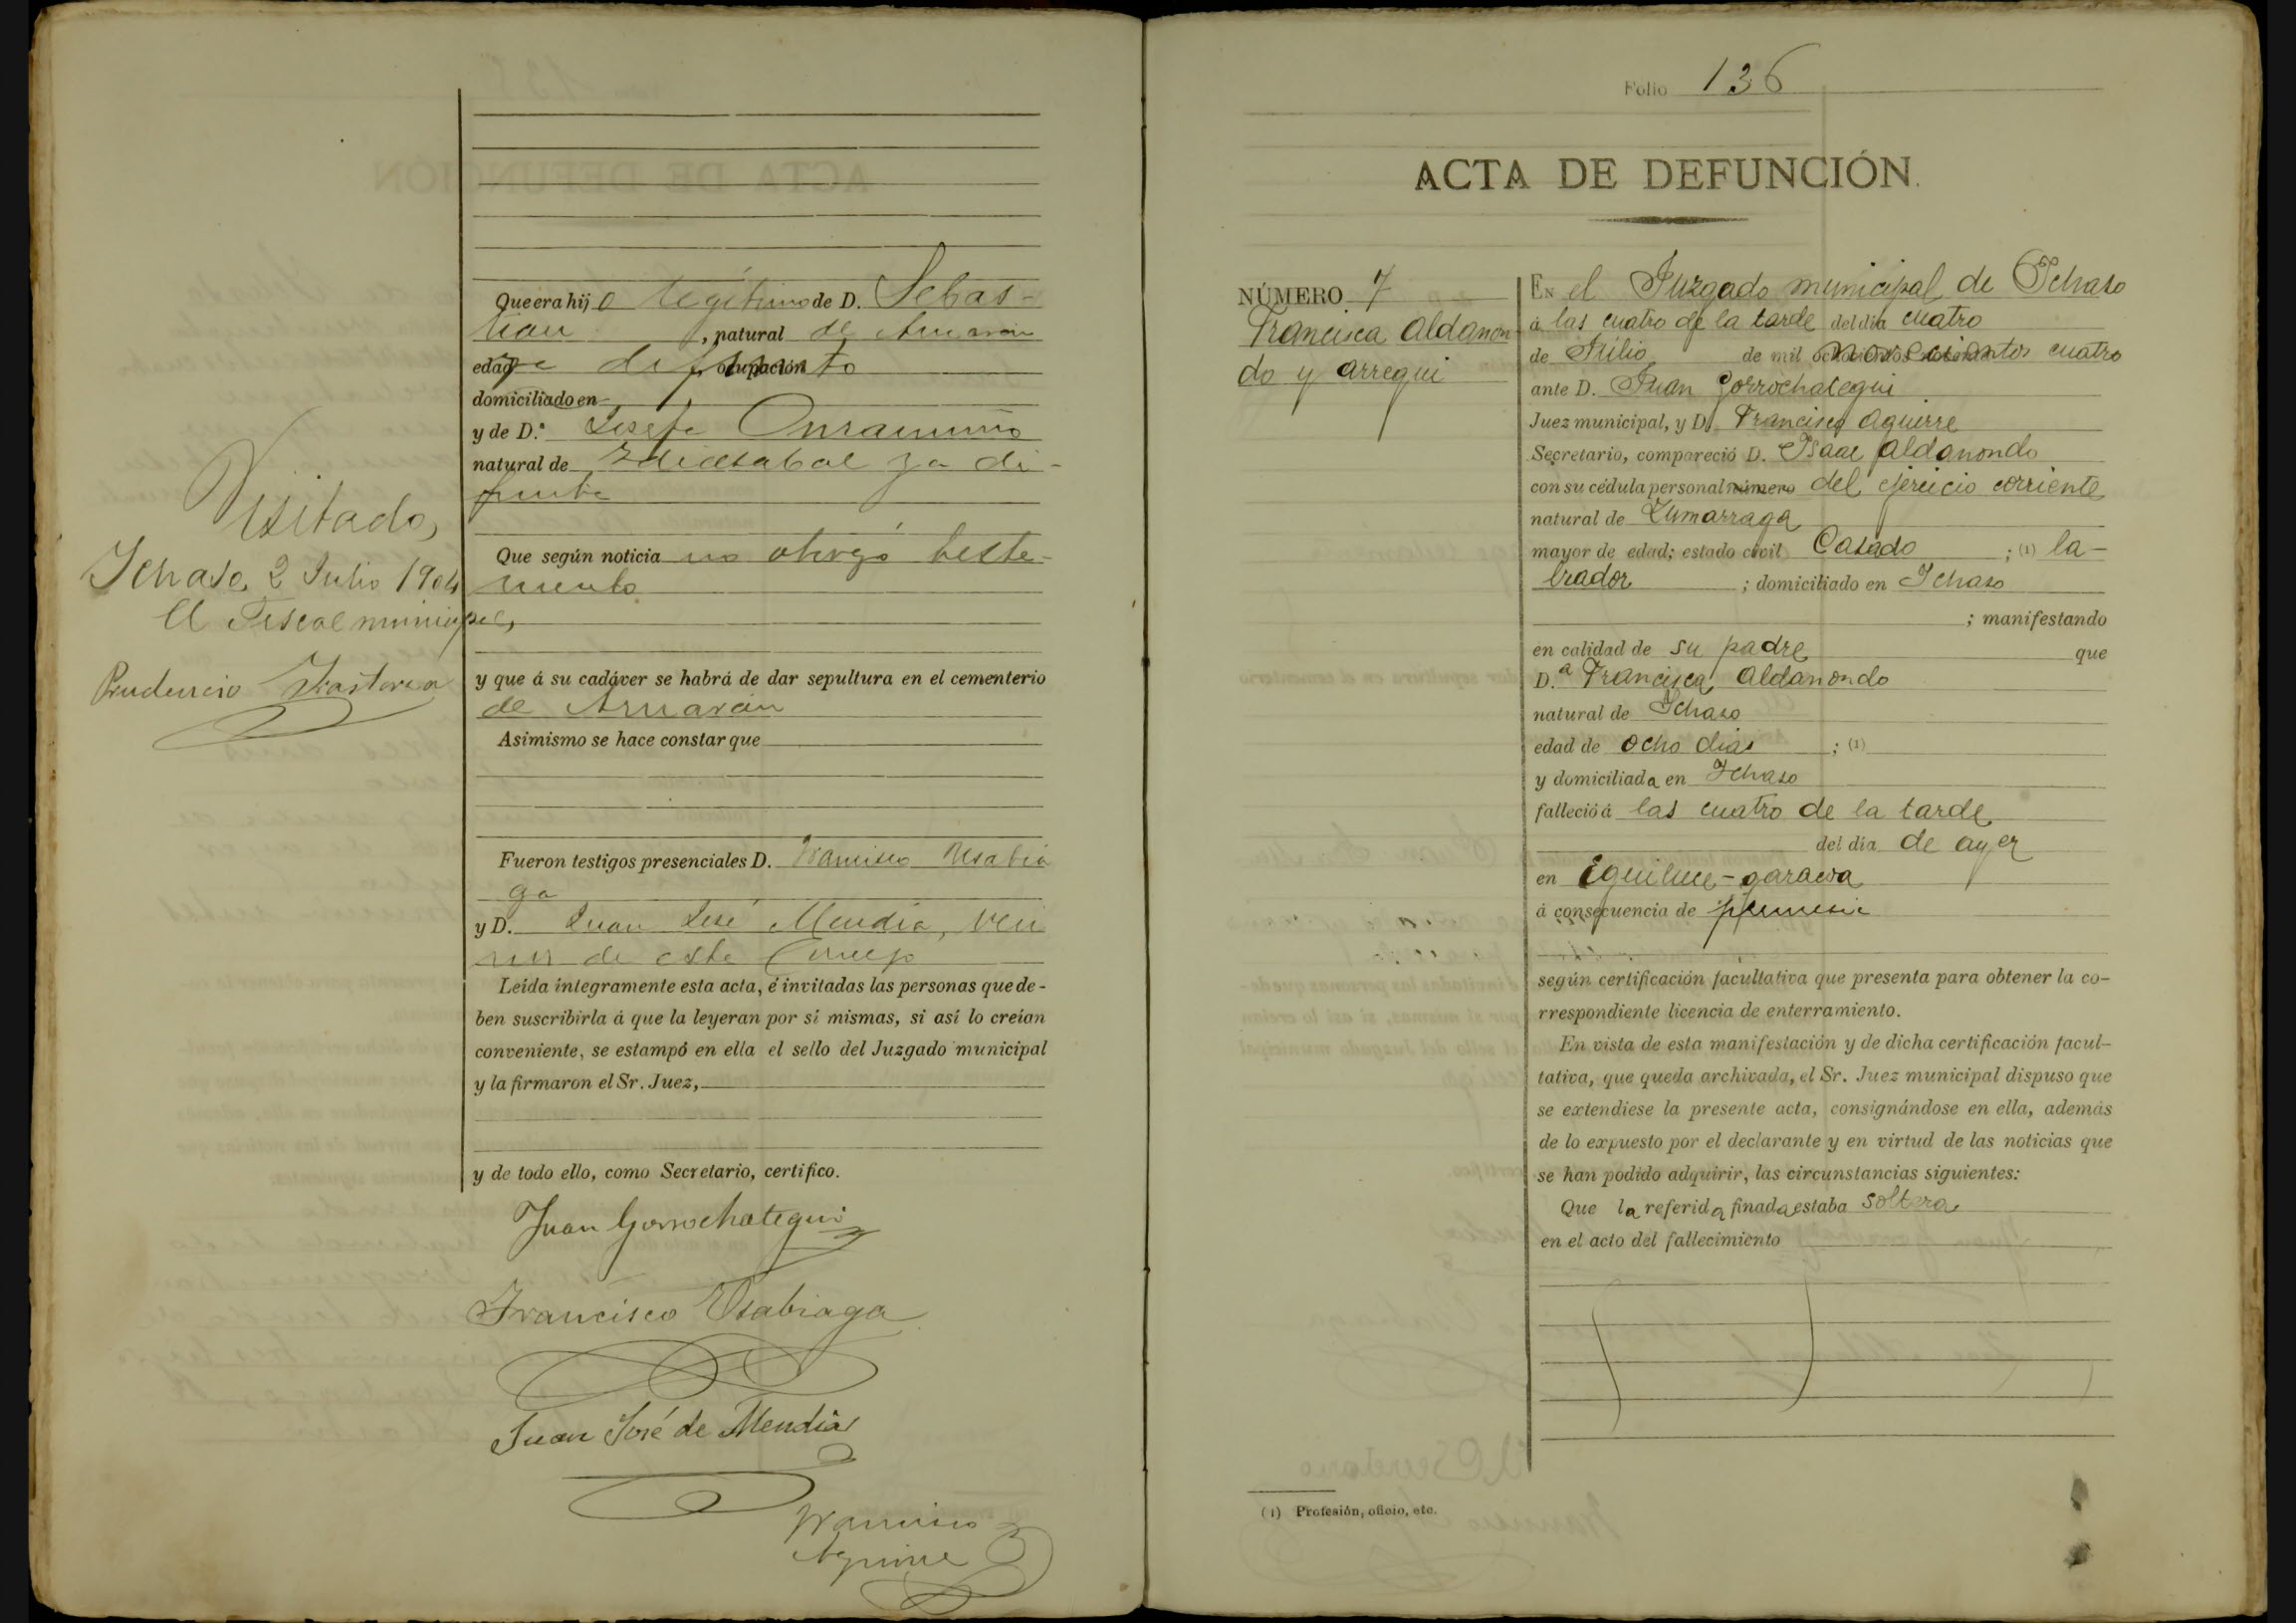 Que era hijo legítimo de D. Sebas-
tian, natural de Arriarán
edad ya difunto ocupación
domiciliado en
y de D.ª Josefa
natural de Idiazabal ya di-
funta
Que según noticia no otorgó testa-
mento
y que á su cadáver se habrá de dar sepultura en el cementerio
de Arriarán
Asimismo se hace constar que
Fueron testigos presenciales D. Francisco Usabia
ga
y D. Juan José Mendia, veci
nos de este Concejo
Leída íntegramente esta acta, é invitadas las personas que de-
ben suscribirla á que la leyeran por sí mismas, si así lo creían
conveniente, se estampó en ella el sello del Juzgado municipal
y la firmaron el Sr. Juez,
y de todo ello, como Secretario, certifico.
Juan Gorrochategui
Francisco Usabiaga
Juan José de Mendia
Francisco
Aguirre
Visitado,
Ichaso 2 Julio 1904
El Fiscal municipal,
Prudencio
Folio 136
ACTA DE DEFUNCIÓN.
NÚMERO 7
Francisca Aldanon
do y Arregui
EN el Juzgado municipal de Ichaso
á las cuatro de la tarde del día cuatro
de Julio de mil ochocientos novecientos cuatro
ante D. Juan Gorrochategui
Juez municipal, y D. Francisco Aguirre
Secretario, compareció D. Isaac Aldanondo
con su cédula personal número del ejercicio corriente
natural de Zumarraga
mayor de edad; estado civil Casado ; (1) la-
brador ; domiciliado en Ichaso
; manifestando
en calidad de su padre que
D.ª Francisca Aldanondo
natural de Ichaso
edad de ocho dias ; (1)
y domiciliada en Ichaso
falleció á las cuatro de la tarde
del día de ayer
en Eguiluce-garacoa
á consecuencia de
según certificación facultativa que presenta para obtener la co-
rrespondiente licencia de enterramiento.
En vista de esta manifestación y de dicha certificación facul-
tativa, que queda archivada, el Sr. Juez municipal dispuso que
se extendiese la presente acta, consignándose en ella, además
de lo expuesto por el declarante y en virtud de las noticias que
se han podido adquirir, las circunstancias siguientes:
Que la referida finada estaba soltera
en el acto del fallecimiento
(1) Profesión, oficio, etc.